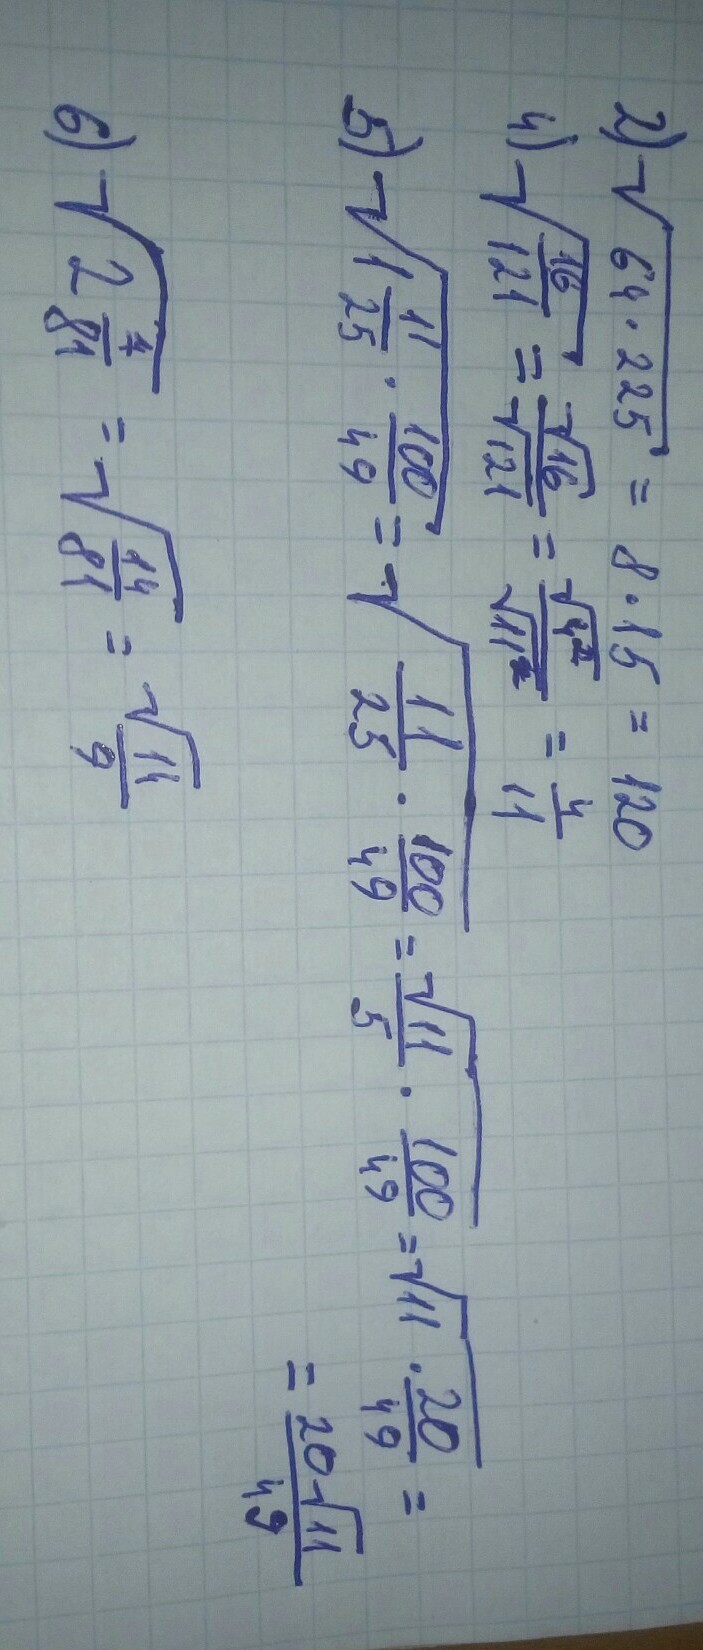 2) √(64·225) = 8·15 = 120
4) √(16/121) = √16/√121 = √4²/√11² = 4/11
5) √(1 11/25 · 100/49) = √(11/25 · 100/49) = √11/5 · 100/49 = √11 · 20/49 =
= 20√11/49
6) √(2 7/81) = √(14/81) = √14/9